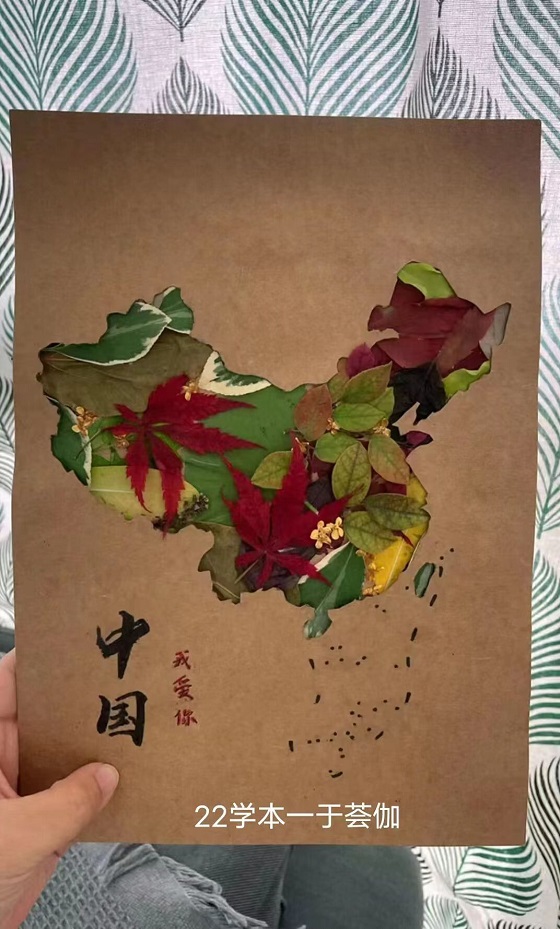 中国
我爱你
22学本一于荟伽